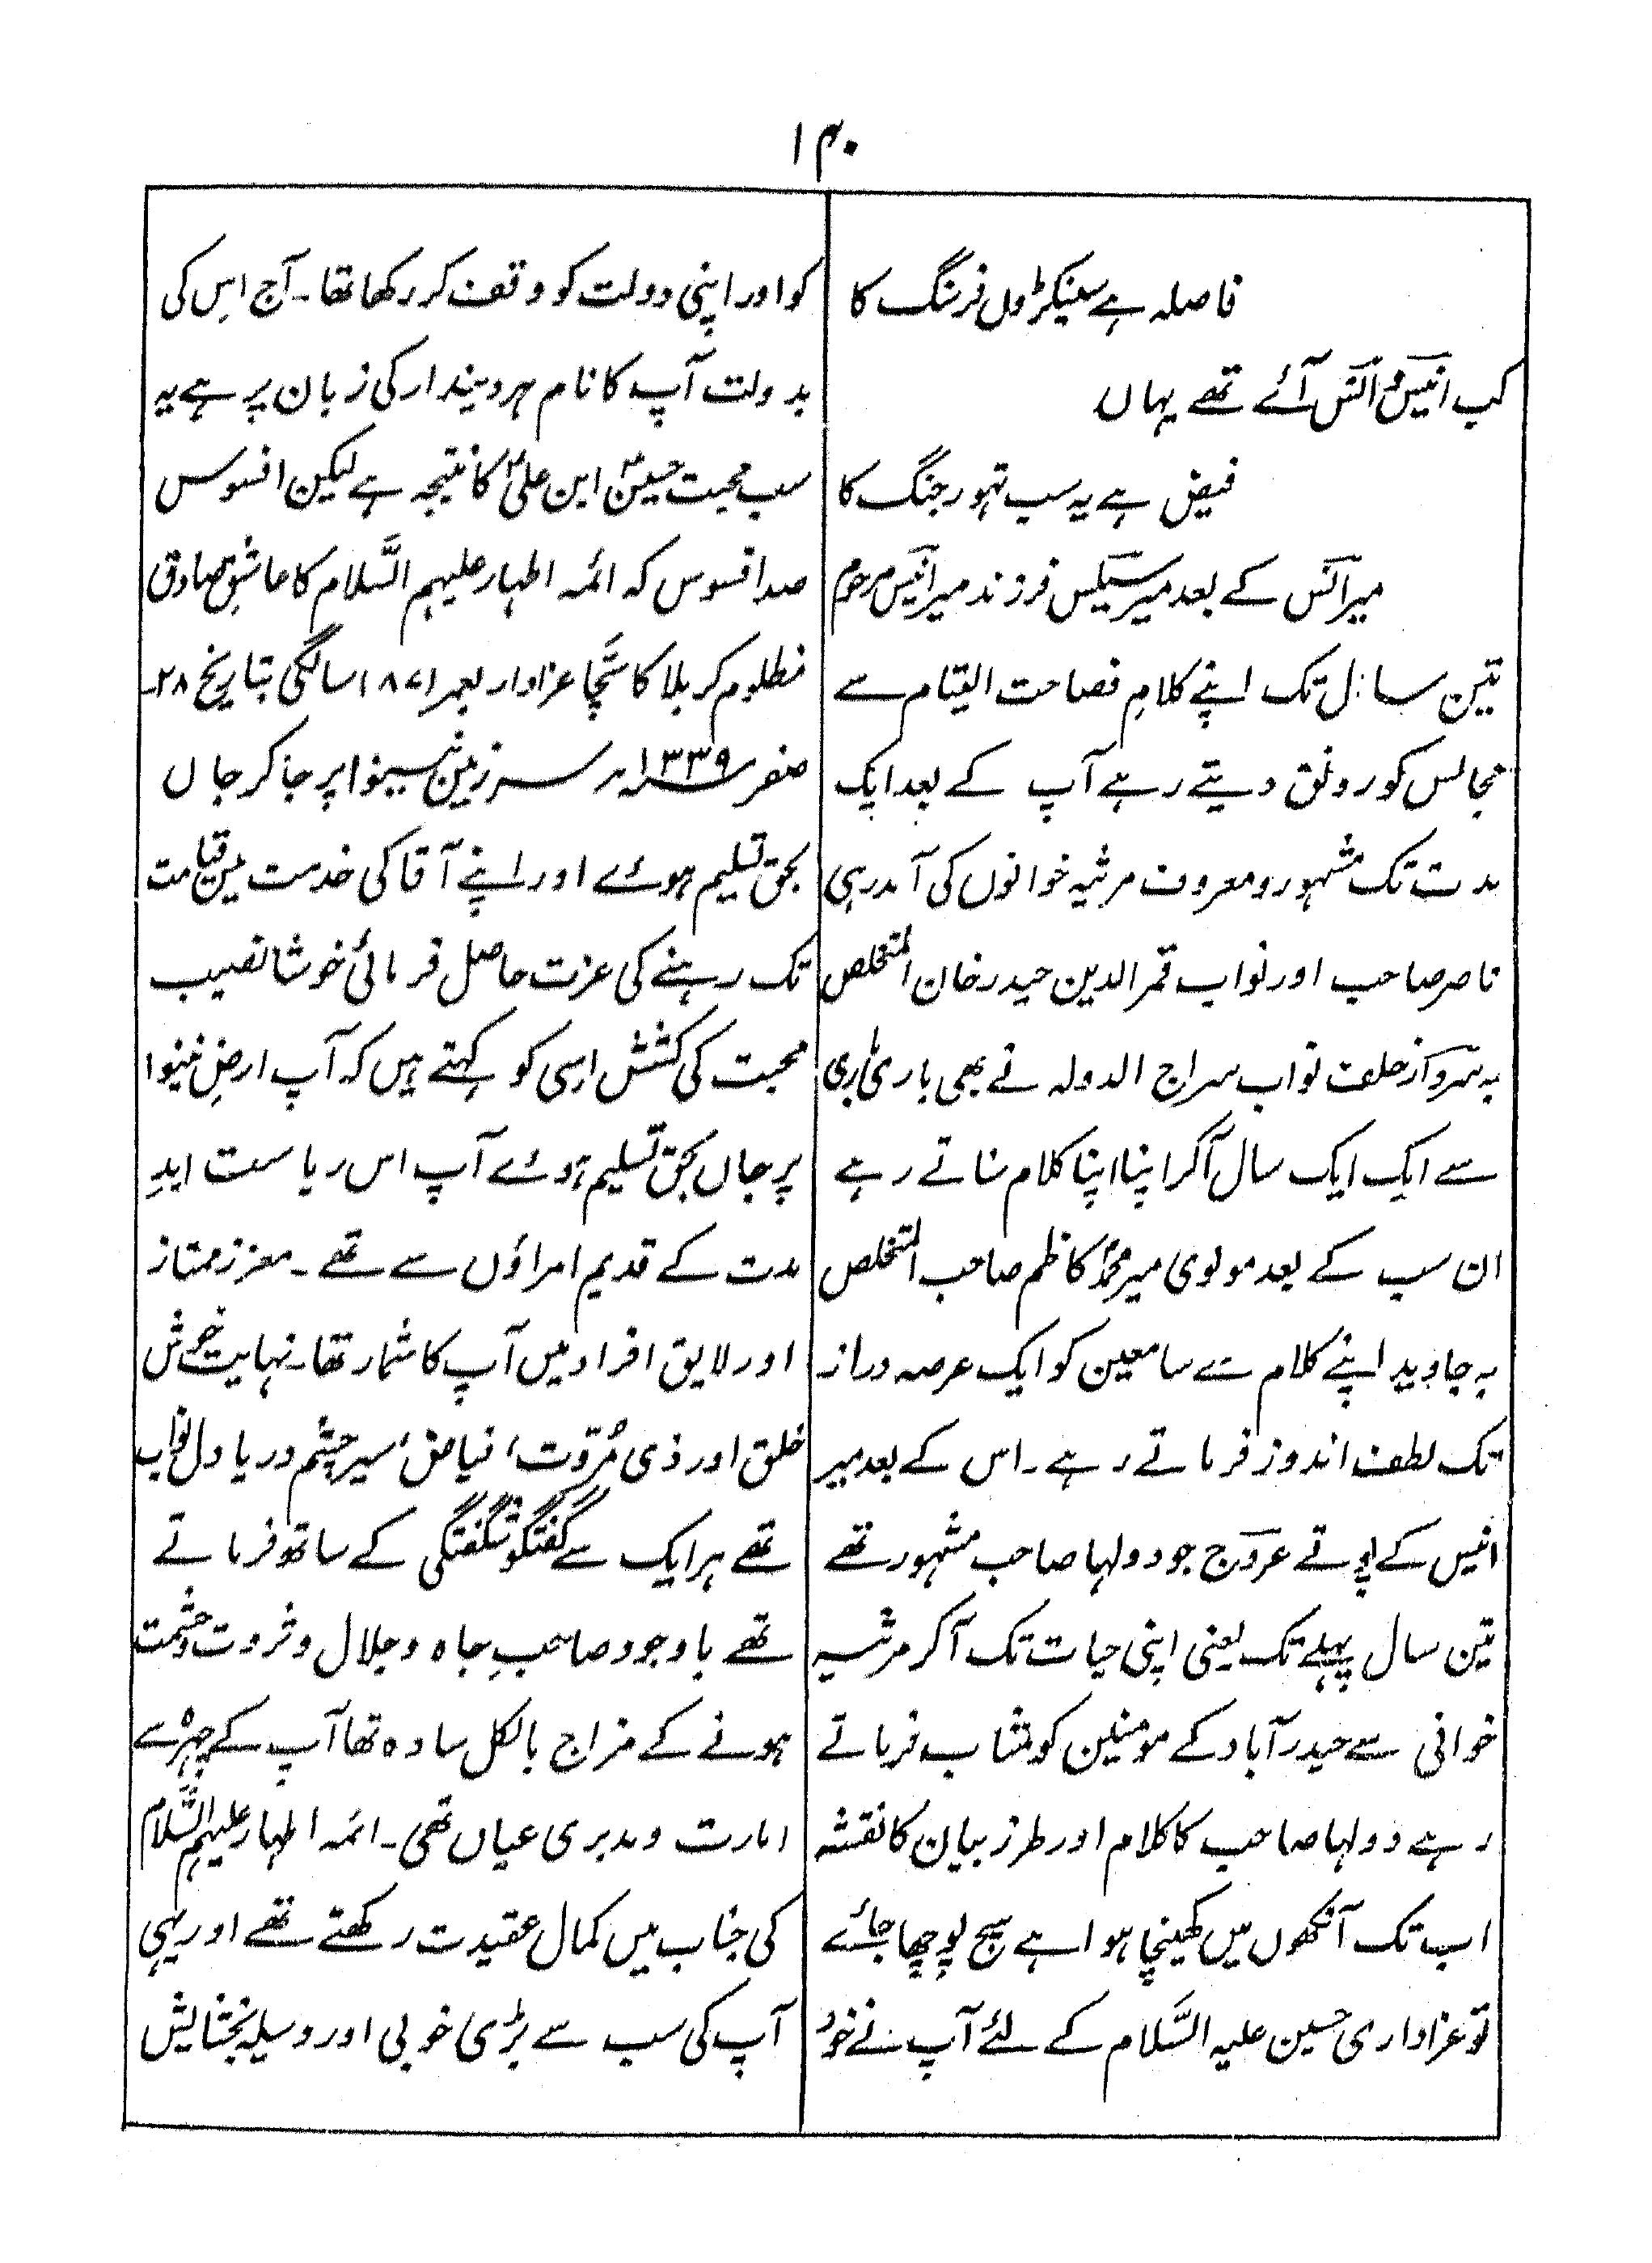 ۱۴۰
فاصلہ ہے سینکڑوں فرسنگ کا
کب انیس و انس آئے تھے یہاں
فیض ہے یہ سب تہور جنگ کا
میر انس کے بعد میر سلیس فرزند میر انیس مرحوم
تین سال تک اپنے کلامِ فصاحت التیام سے
مجالس کو رونق دیتے رہے آپ کے بعد ایک
مدت تک مشہور و معروف مرثیہ خوانوں کی آمد رہی
ناصر صاحب اور نواب قمر الدین حیدر خان المتخلص
بہ سروآز خلف نواب سراج الدولہ نے بھی باری باری
سے ایک ایک سال آکر اپنا اپنا کلام سناتے رہے
ان سب کے بعد مولوی میر محمدؐ کاظم صاحب المتخلص
بہ جاوید اپنے کلام سے سامعین کو ایک عرصہ دراز
تک لطف اندوز فرماتے رہے۔ اس کے بعد میر
انیس کے پوتے عروؔج جو دولہا صاحب مشہور تھے
تین سال پہلے تک یعنی اپنی حیات تک آکر مرثیہ
خوانی سے حیدرآباد کے مومنین کو مثاب فرماتے
رہے دولہا صاحب کا کلام اور طرز بیان کا نقشہ
اب تک آنکھوں میں کھینچا ہوا ہے سچ پوچھا جائے
تو عزاداری حسین علیہ السَّلام کے لئے آپ نے خود
کو اور اپنی دولت کو وقف کر رکھا تھا۔ آج اِس کی
بدولت آپ کا نام ہر دیندار کی زبان پر ہے یہ
سب محبت حسینؑ ابن علیؑ کا نتیجہ ہے لیکن افسوس
صد افسوس کہ ائمہ اطہار علیہم السَّلام کا عاشقِ صادق
مظلوم کربلا کا سَچّا عزادار بعمر (۸۷) سالگی بتاریخ ۲۸۔
صفر ۱۳۳۹؁ھ سرزمین نینوا پر جا کر جاں
بحق تسلیم ہوئے اور اپنے آقا کی خدمت میں قیامت
تک رہنے کی عزت حاصل فرمائی خوشا نصیب
محبت کی کشش اِسی کو کہتے ہیں کہ آپ ارضِ نینوا
پر جاں بحق تسلیم ہوئے آپ اس ریاست ابدِ
مدت کے قدیم امراؤں سے تھے۔ معزز ممتاز
اور لایق افراد میں آپ کا شمار تھا۔ نہایت خوش
خلق اور ذی مُروّت، فیاض، سیر چشم دریا دل نواب
تھے ہر ایک سے گفتگو شگفتگی کے ساتھ فرماتے
تھے باوجود صاحبِ جاہ و جلال و ثروت و حشمت
ہونے کے مزاج بالکل سادہ تھا آپ کے چہرہ سے
امارت و مدبری عیاں تھی۔ ائمہ اطہار علیہم السَّلام
کی جناب میں کمال عقیدت رکھتے تھے اور یہی
آپ کی سب سے بڑی خوبی اور وسیلہ بخشایش